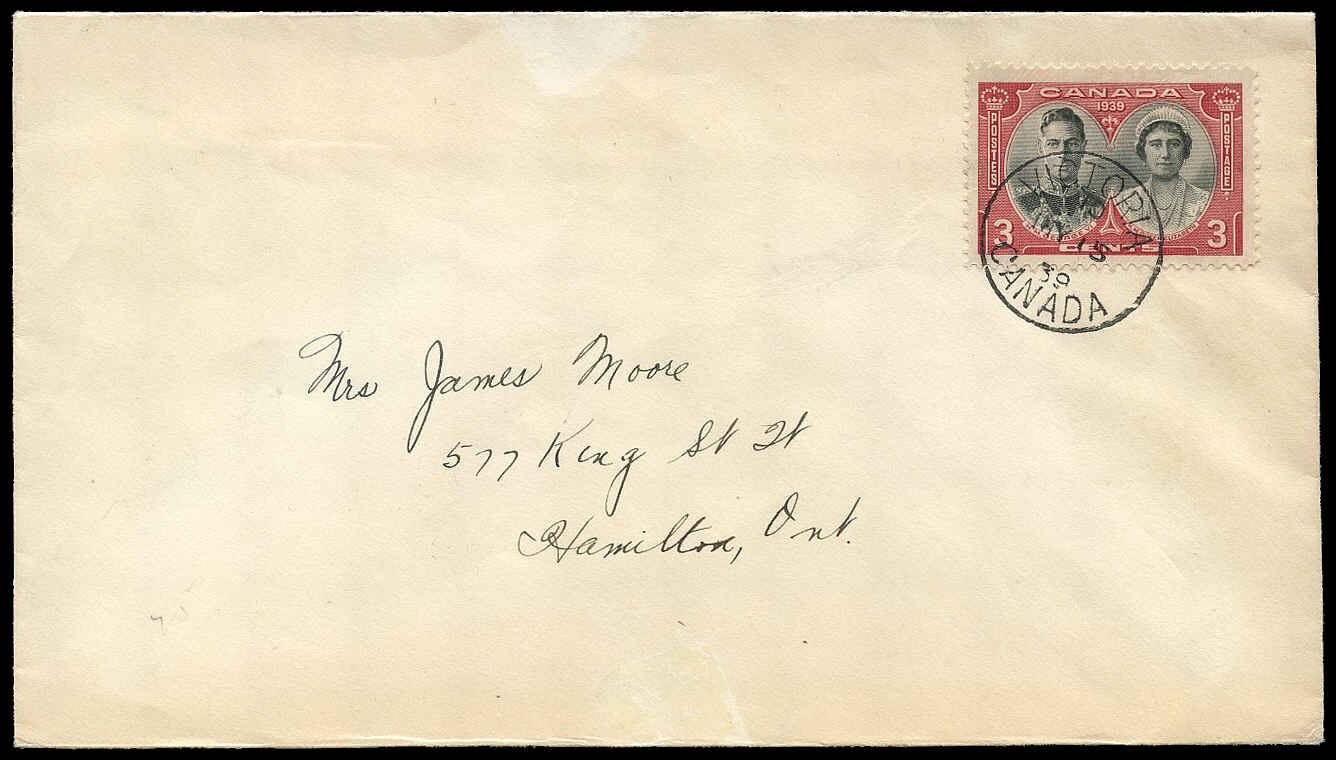 CANADA
1939
POSTES
POSTAGE
3 CENTS 3
VICTORIA
MY 15
39
CANADA
Mrs James Moore
577 King St W
Hamilton, Ont.